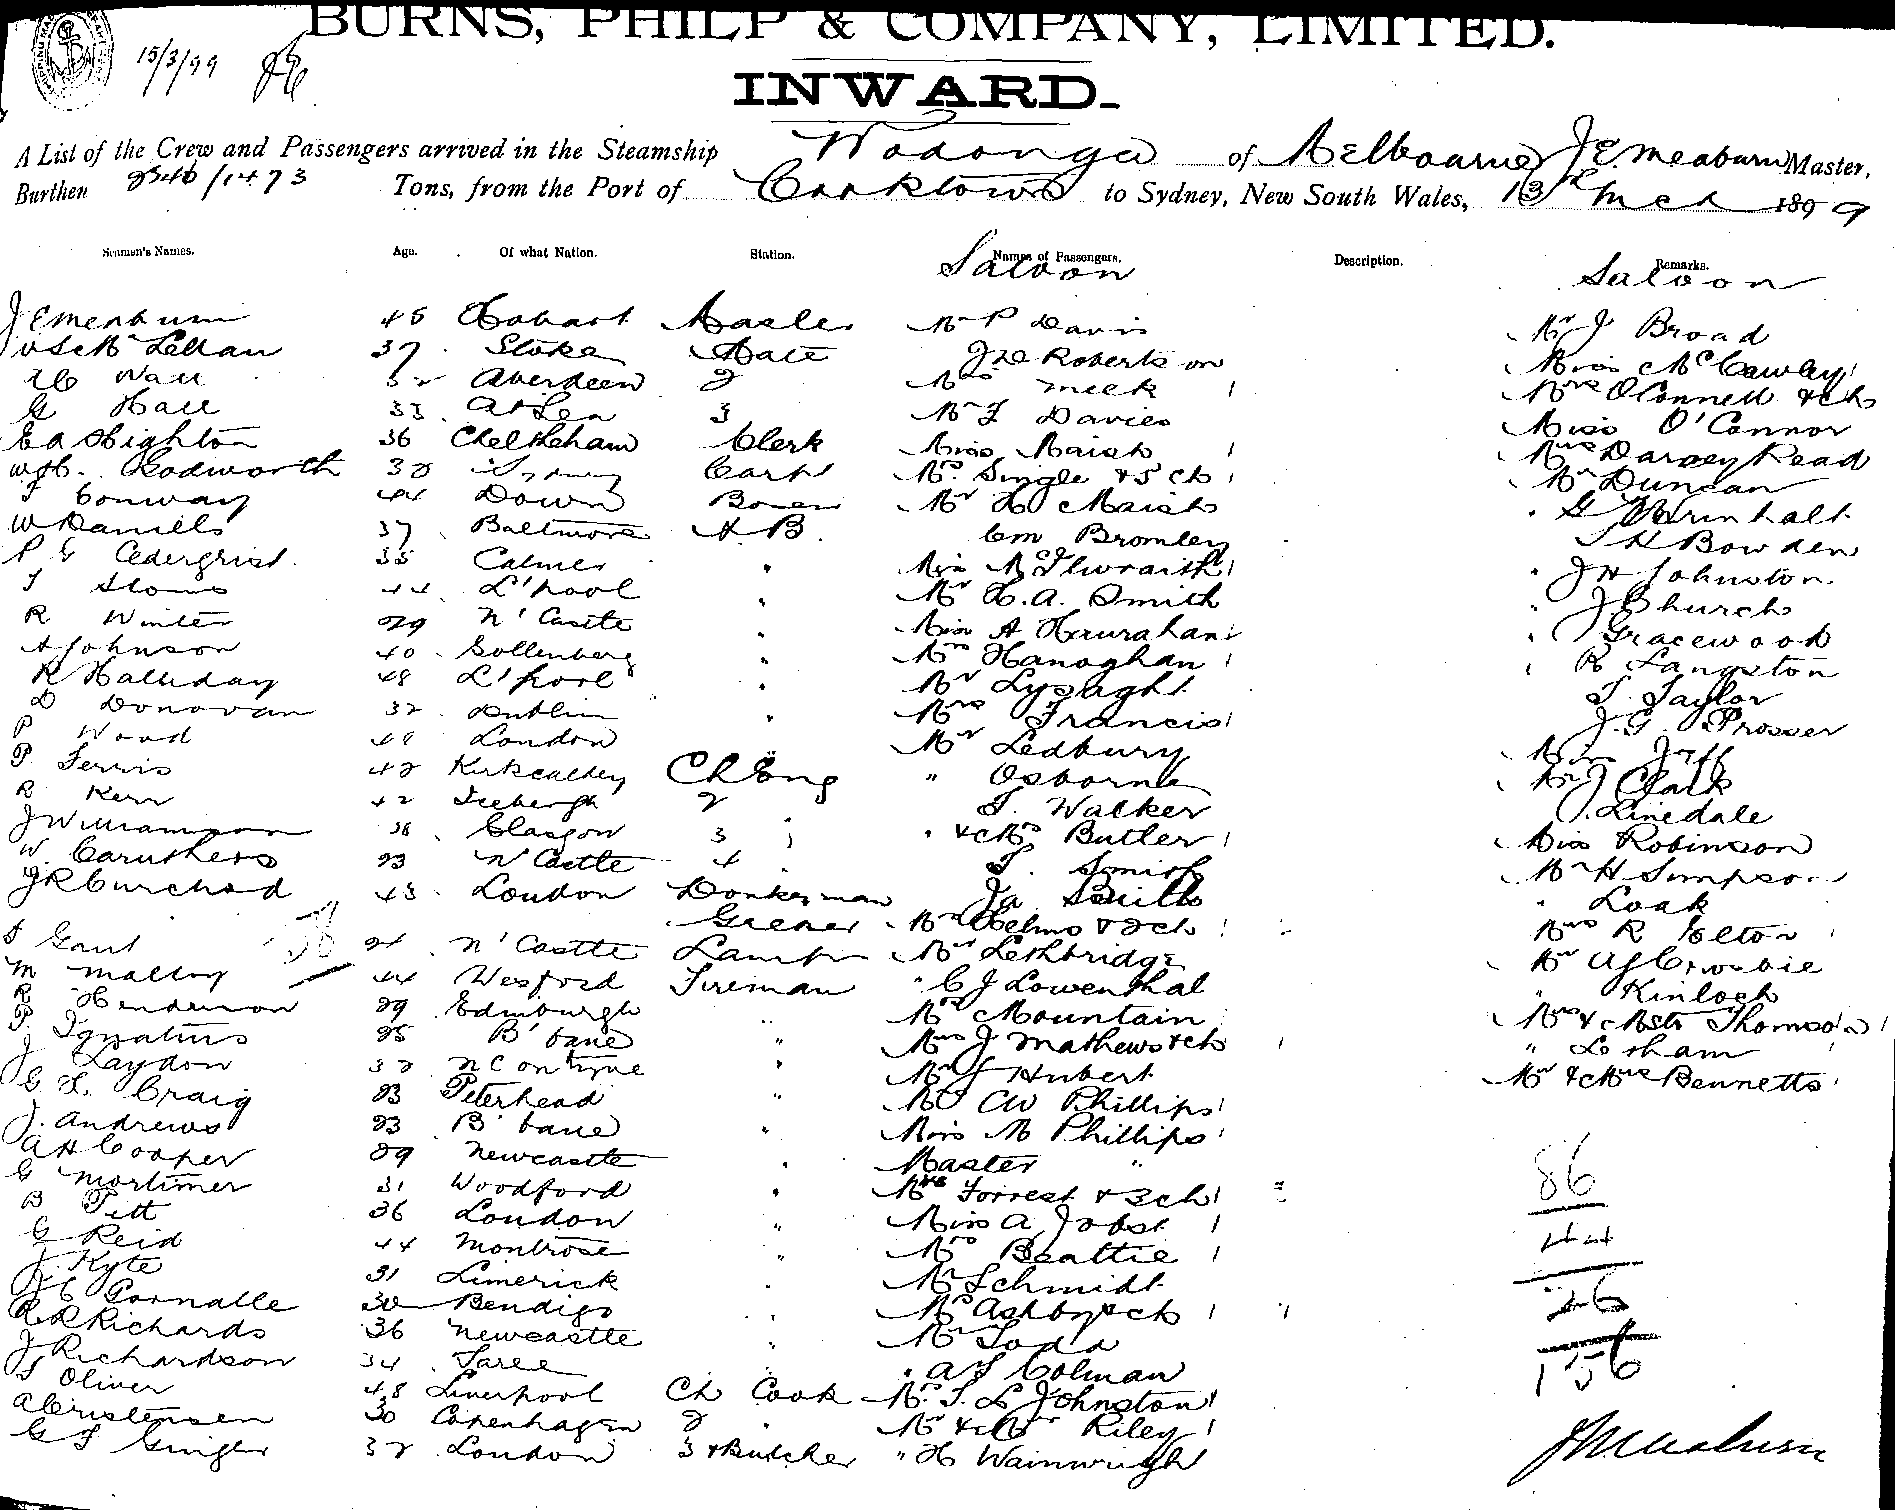 BURNS, PHILP & COMPANY, LIMITED.
15/3/99
INWARD.
A List of the Crew and Passengers arrived in the Steamship Wodonga of Melbourne J E Meaburn Master,
Burthen 2346/1473 Tons, from the Port of Cooktown to Sydney, New South Wales, 13th Mch 1899
Seamen's Names. Age. Of what Nation. Station. Names of Passengers. Description. Remarks.
Saloon Saloon
J E Meaburn 45 Hobart Master Mr P Davis Mr J Broad
37 Stoke Mate Jno Robertson Miss McCawley
Wall 32 Aberdeen 2 Mrs Meek Mrs O'Connell & ch
G Hall 33 At Sea 3 Mr F Davies Miss O'Connor
E A Highton 36 Cheltenham Clerk Miss Maish Mrs Darvey Read
30 Sydney Carpr Mrs Single & 5 ch Mr Duncan
T Conway 44 Down Bosen Mr H Maish G
W Daniells 37 Baltimore A B. Bromley Bowden
P G Cedergrist 35 Calmer " Miss McIlwraith " J H Johnston
T Stone 44 L'pool " Mr H. A. Smith " J Church
R Winter 29 N'Castle " Miss A Haurahan " Gracewood
A Johnson 40 Gollenberg " Mrs Hanaghan " R Langston
R Halliday 48 L'pool " Mr Lysaght T. Taylor
D Donovan 32 Dublin " Mrs Francis J. G. Prosser
P Wood 49 London " Mr Ledbury Miss Jeff
P. Ferris 42 Kirkcaldy Ch Eng " Osborne Mr J Clark
R Kerr 42 2 T. Walker J. Linedale
J Williamson 38 Glasgow 3 " & Mrs Butler Miss Robinson
W. Caruthers 23 N'Castle 4 T. Smith Mr H Simpson
J R Curchod 43 London Donkeyman Ja Smith " Loak
Greaser Mrs Helms & 2 ch Mrs R Tolton
T Gant 24 N'Castle Lamps Mr Lethbridge Mr A J Crosbie
M Malloy 44 Wexford Fireman " C J Lowenthal " Kinloch
R Henderson 29 Edinburgh " Mrs Mountain Mrs & Mstr Thomson
P. Ignatius 25 B'bane " Mrs J Mathews & ch "
J Laydon 32 " Mr J Hubert Mr & Mrs Bennetts
G L. Craig 23 Peterhead " Mrs C W Phillips
J. Andrews 23 B'bane " Miss M Phillips
A H Cooper 29 Newcastle " Master "
G Mortimer 31 Woodford " Mrs Forrest & 3 ch 86
B Pitt 36 London " Miss A Jobst
G Reid 44 Montrose " Mrs Beattie 44
J. Kyte 31 Limerick " Mr Schmidt
Gornalle 30 Bendigo " Mrs Ashby & ch 26
R R Richards 36 Newcastle " Mr Todd
J Richardson 34 Taree " " A J Colman 156
T Oliver 48 Liverpool Ch Cook Mrs T. L Johnston
A Cristensen 30 Copenhagen 2 " Mr & Mrs Riley
G T Gingler 32 London 3 & Butcher " H Wainwright
J E Meaburn